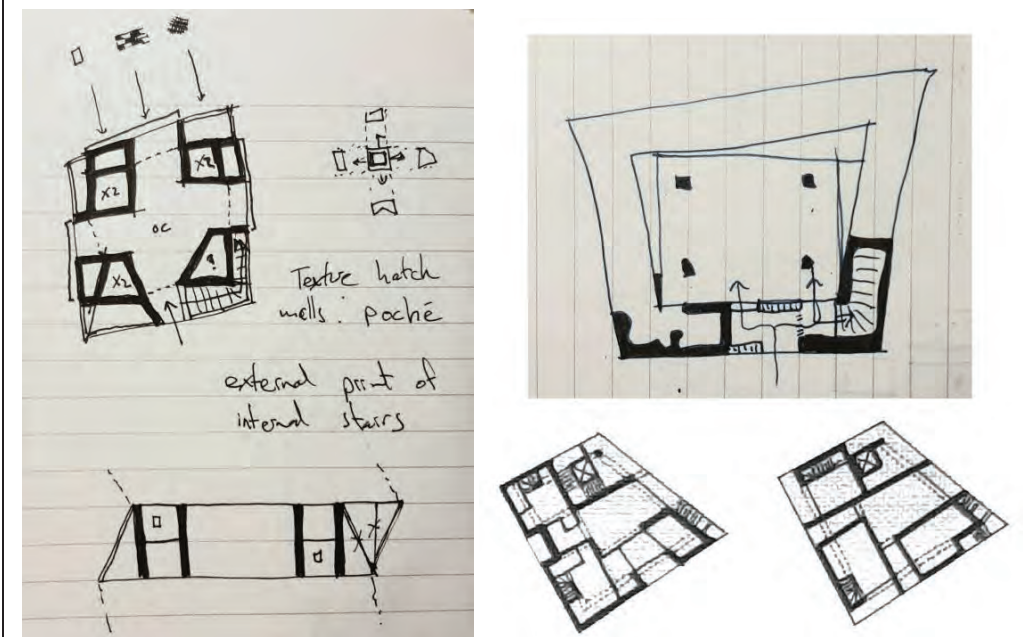 X2
X2
OC
X2
?
Texture hatch
walls: poché
external print of
internal stairs